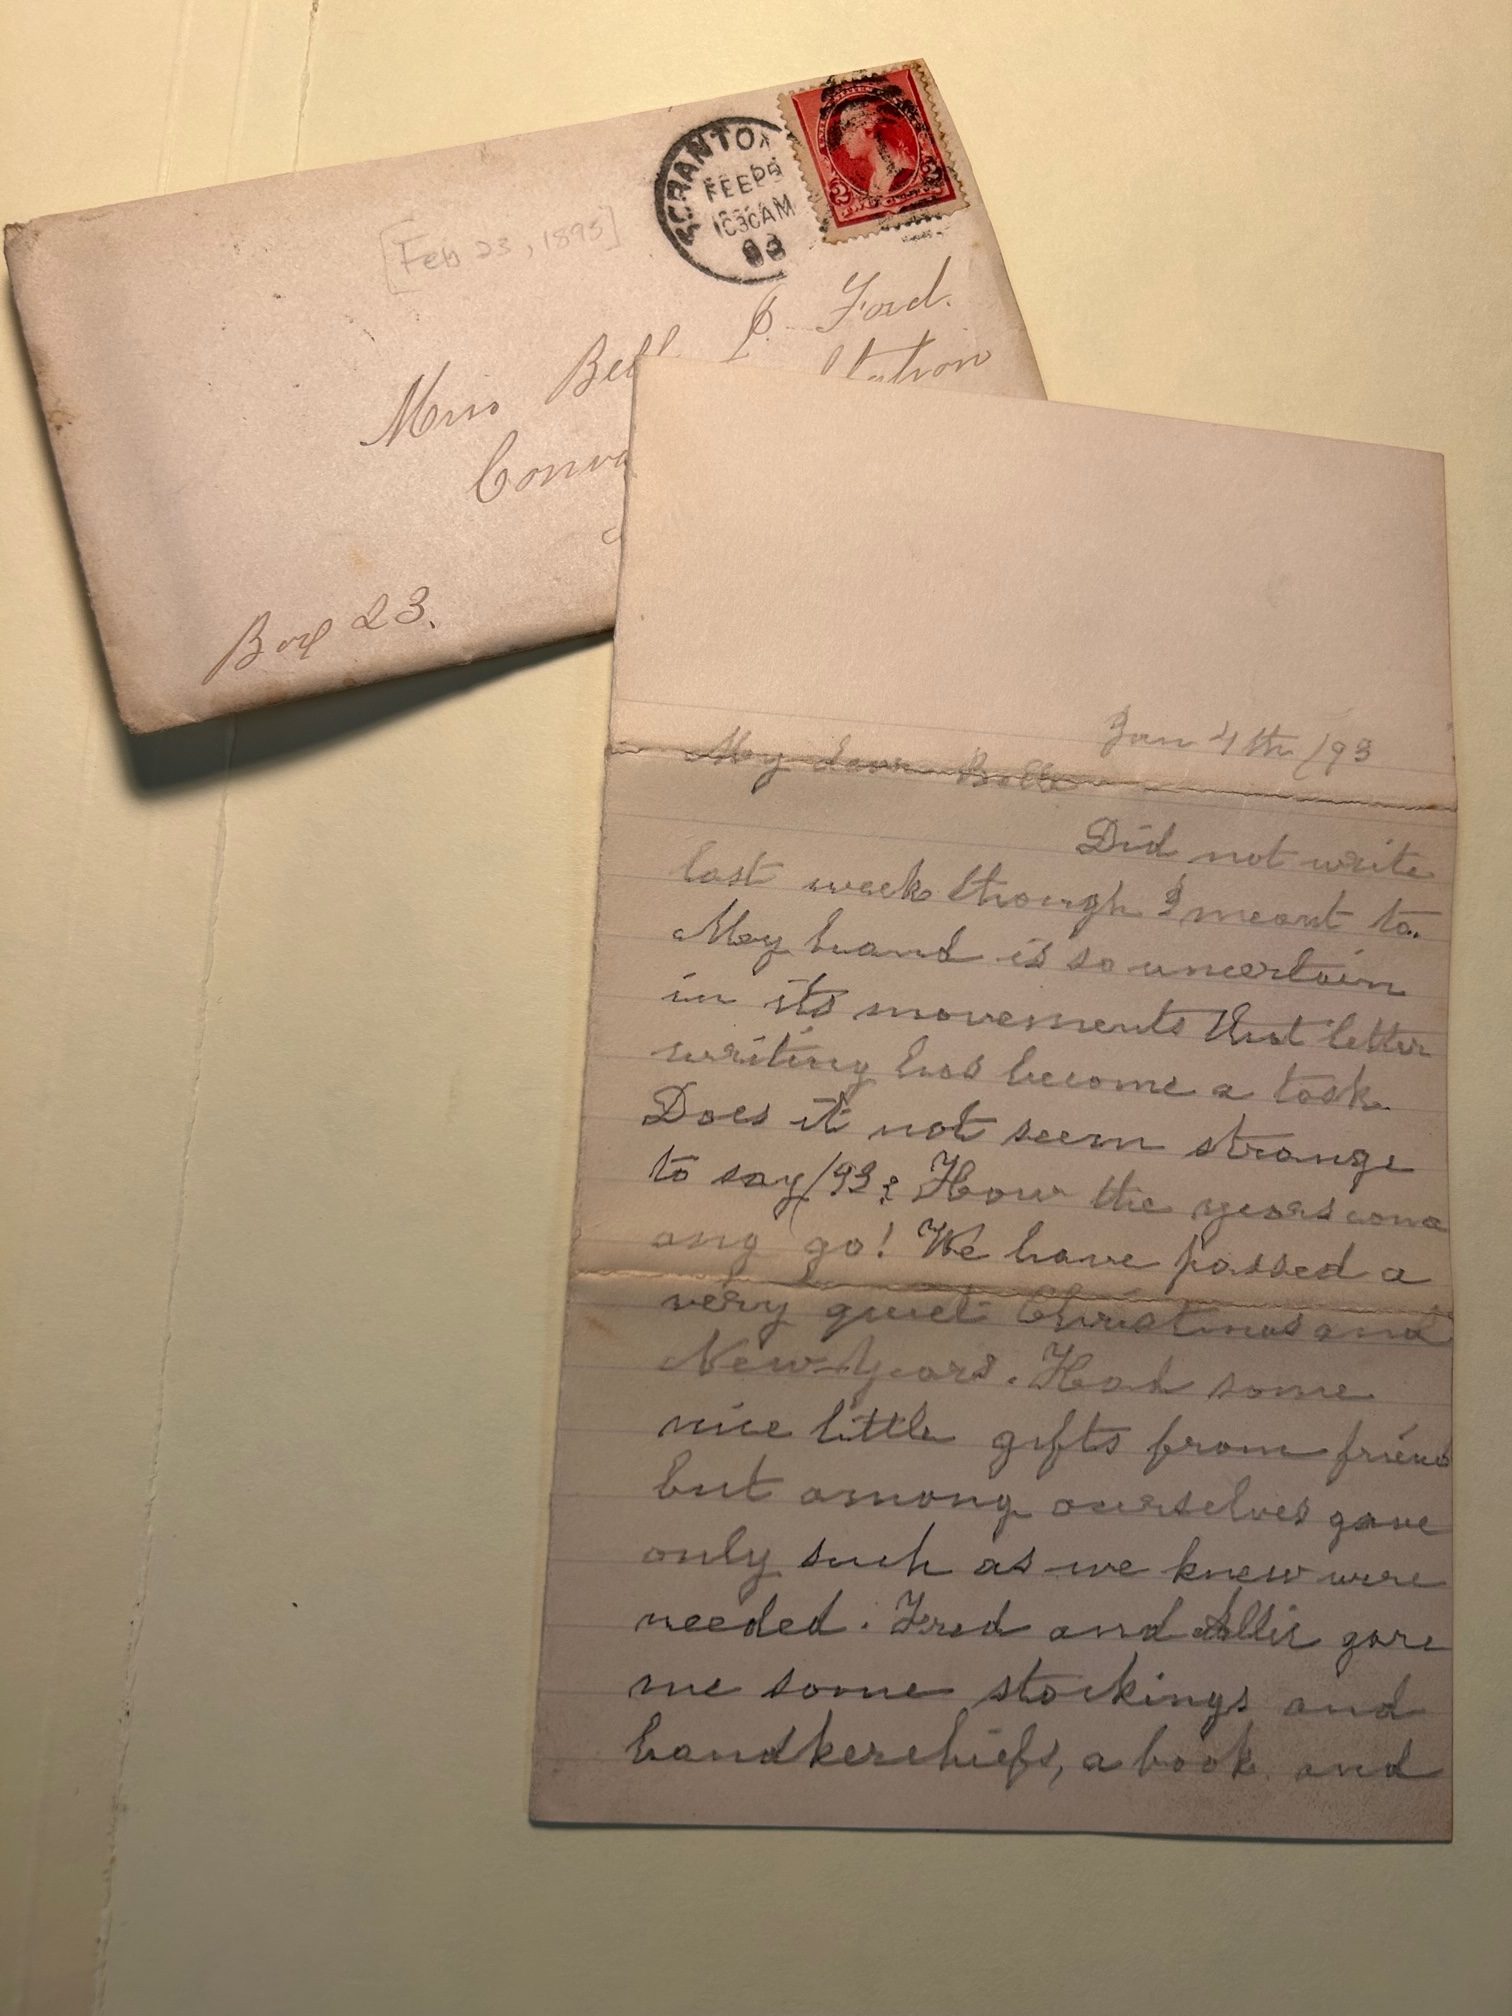 SCRANTON
FEB
1030AM
93
2 2
[Feb 23, 1893]
Miss Bell P. Ford.
Station
Box 23.
Jan 4th /93
My dear Belle
Did not write
last week though I meant to.
My hand is so uncertain
in its movements that letter
writing has become a task.
Does it not seem strange
to say /93? How the years come
ang go! We have passed a
very quiet Christmas and
New-Years. Had some
nice little gifts from friend
but among ourselves gave
only such as we knew were
needed. Fred and Allie gave
me some stockings and
handkerchiefs, a book and